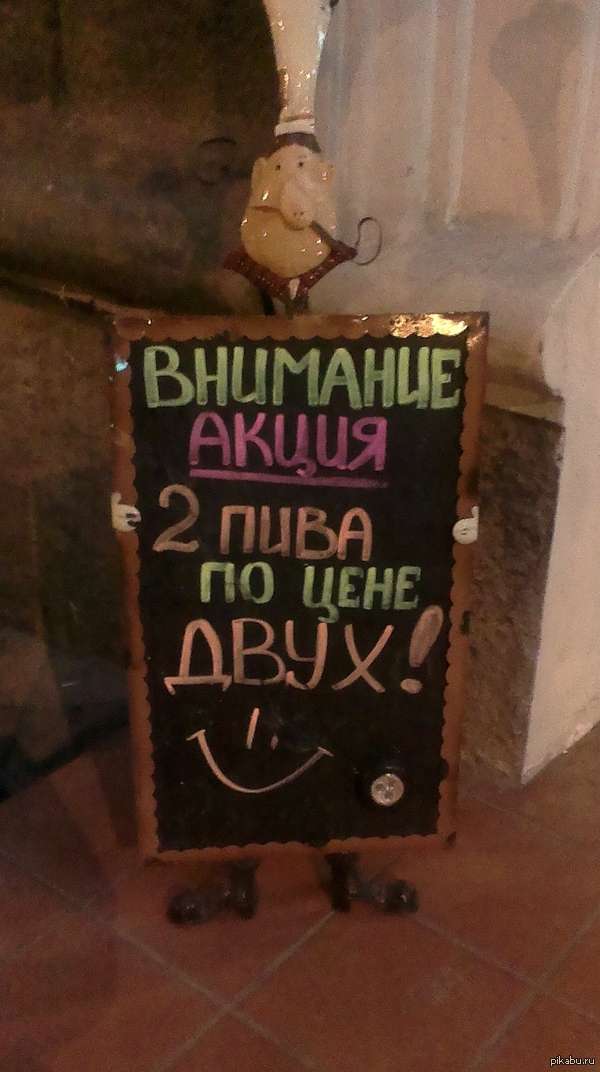 ВНИМАНИЕ
АКЦИЯ
2 ПИВА
ПО ЦЕНЕ
ДВУХ!
pikabu.ru